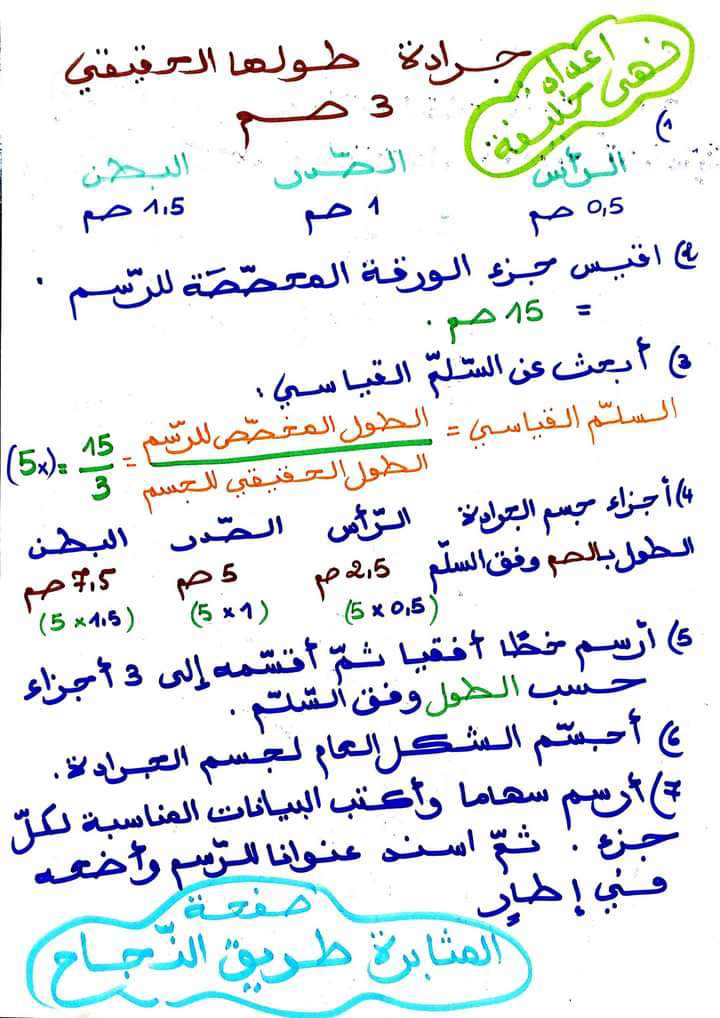 جرادة طولها الحقيقي
3 صم
اعداد
نهى خليفة
1)
الرّأس الصّدر البطن
0,5 صم 1 صم 1,5 صم
2) اقيس جزء الورقة المخصّصة للرّسم .
= 15 صم .
3) أبحث عن السّلّم القياسي :
السلّم القياسي = الطول المخصّص للرّسم / الطول الحقيقي للجسم = 15/3 = (5x)
4) أجزاء جسم الجرادة الرّأس الصّدر البطن
الطول بالصم وفق السلّم 2,5 صم 5 صم 7,5 صم
(5 x 0,5) (5 x 1) (5 x 1,5)
5) أرسم خطّا أفقيا ثمّ أقسّمه إلى 3 أجزاء
حسب الطول وفق السّلّم .
6) أجسّم الشكل العام لجسم الجرادة .
7) أرسم سهاما وأكتب البيانات المناسبة لكلّ
جزء . ثمّ اسند عنوانا للرّسم وأضعه
في إطار
صفحة
المثابرة طريق النّجاح